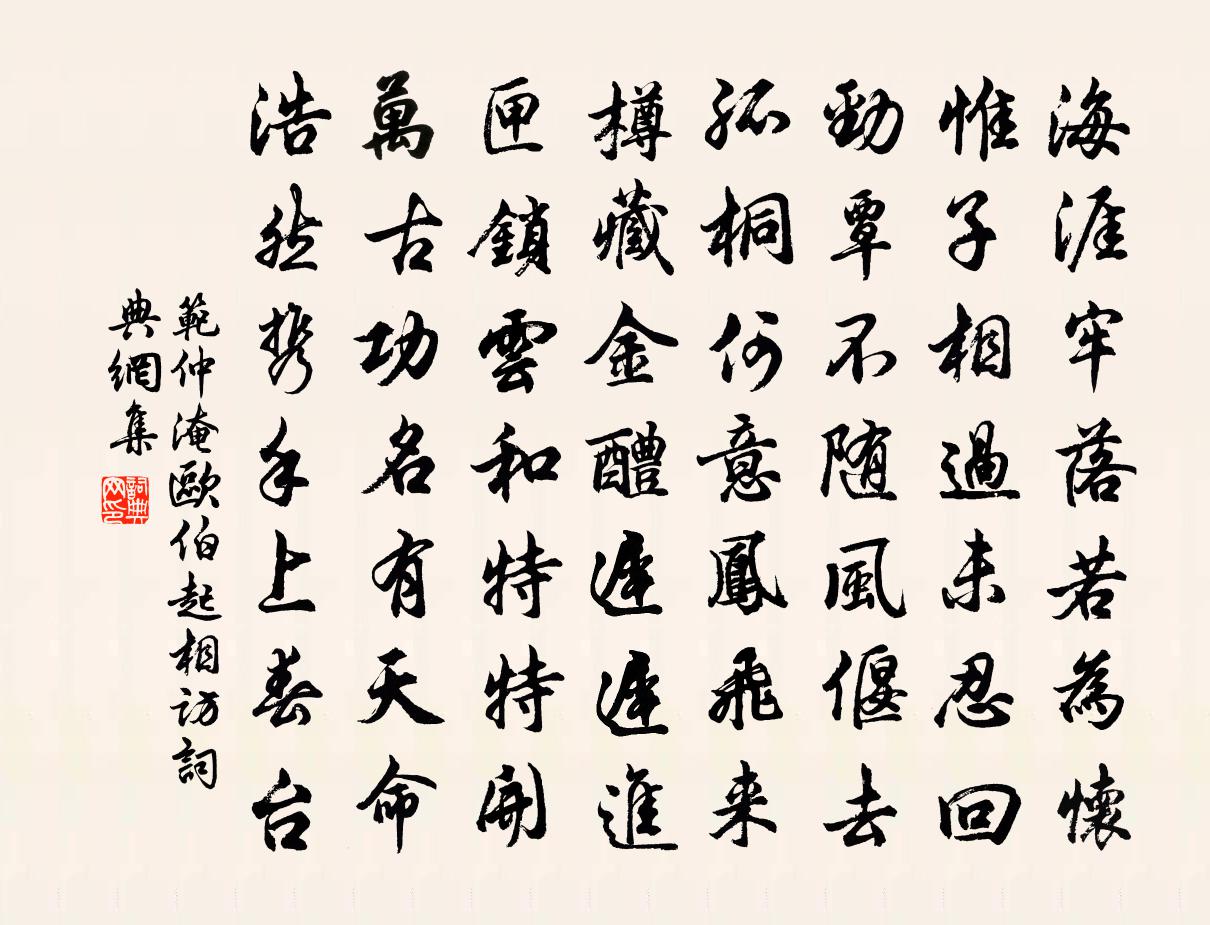 海涯牢落若為懷
惟子相過未忍回
勁草不随風偃去
孤桐何意鳳飛来
樽藏金醴遲遲進
匣鎖雲和特特開
萬古功名有天命
浩然携手上春台
範仲淹歐伯起相訪詞
典網集
詞典网印